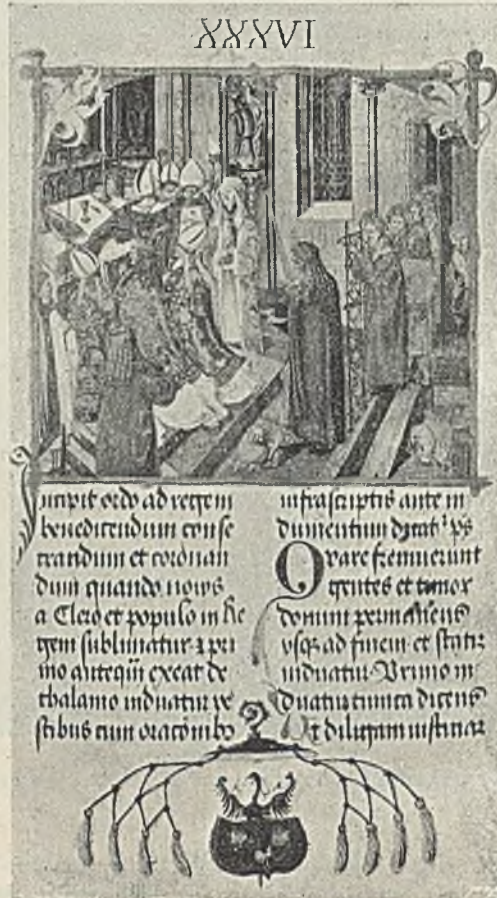 XXXVI
Incipit ordo ad regem
benedicendum conse
crandum et coronan
dum quando novus
a Clero et populo in Re
gem sublimatur. ⁊ pri
mo anteqm̄ exeat de
thalamo induatur ve
stibus cum oracōnibꝰ
infrascriptis ante in
dumentum
Quare fremuerunt
gentes et timor
domini permanens
vsqꝫ ad finem et statĩ
induatur. Primo in
duatur tunica dicens
Ut diligam iusticiaʒ